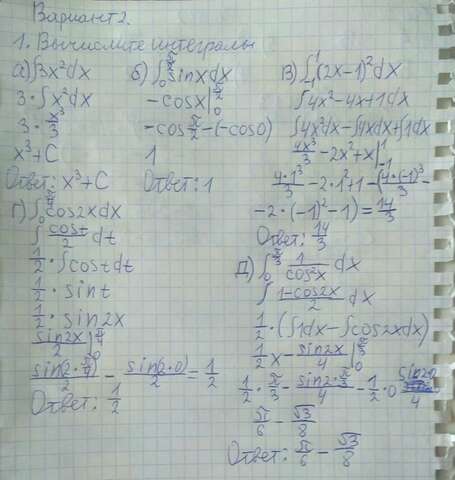 Вариант 2.
1. Вычислите интегралы
а) ∫3x²dx
3·∫x²dx
3·x³/3
x³+C
Ответ: x³+C
б) ∫₀^(π/2) sinxdx
-cosx|₀^(π/2)
-cos π/2-(-cos0)
1
Ответ: 1
в) ∫₋₁¹(2x-1)²dx
∫4x²-4x+1dx
∫4x²dx-∫4xdx+∫1dx
4x³/3-2x²+x|₋₁¹
4·1³/3-2·1²+1-(4·(-1)³/3-
-2·(-1)²-1)=14/3
Ответ: 14/3
г) ∫₀^(π/4) cos2xdx
∫cost/2 dt
1/2·∫costdt
1/2·sint
1/2·sin2x
sin2x/2|₀^(π/4)
sin(2·π/4)/2-sin(2·0)/2=1/2
Ответ: 1/2
Д) ∫₀^(π/3) 1/cos²x dx
∫1-cos2x/2 dx
1/2·(∫1dx-∫cos2xdx)
1/2x-sin2x/4|₀^(π/3)
1/2·π/3-sin2·π/3/4-1/2·0 sin2·0/4
π/6-√3/8
Ответ: π/6-√3/8